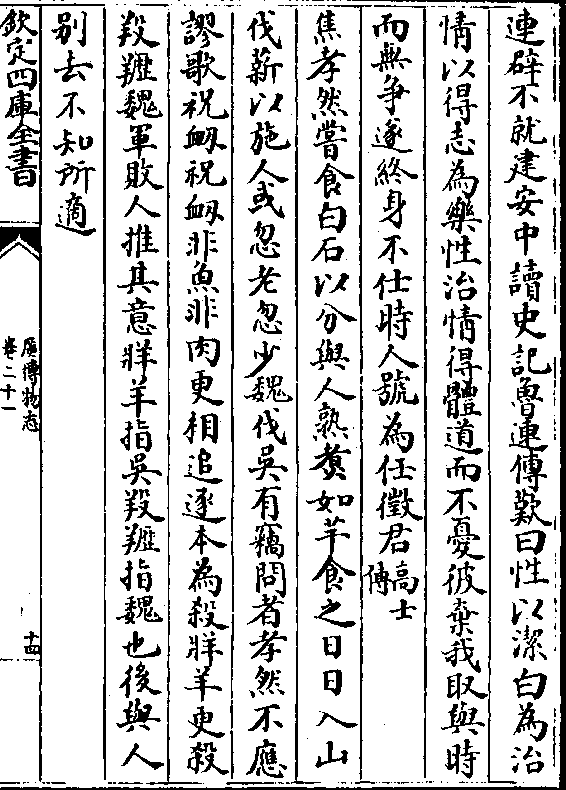 連辟不就建安中讀史記魯連傳歎曰性以潔白為治
情以得志為樂性治情得體道而不憂彼棄我取與時
而無爭遂終身不仕時人號為任徵君高士傳
焦孝然嘗食白石以分與人熟煑如芋食之日日入山
伐薪以施人或忽老忽少魏伐吳有竊問者孝然不應
謬歌祝衂祝衂非魚非肉更相追逐本為殺牂羊更殺
羖䍽魏軍敗人推其意牂羊指吳羖䍽指魏也後與人
别去不知所適
欽定四庫全書
廣博物志
卷二十一
十四